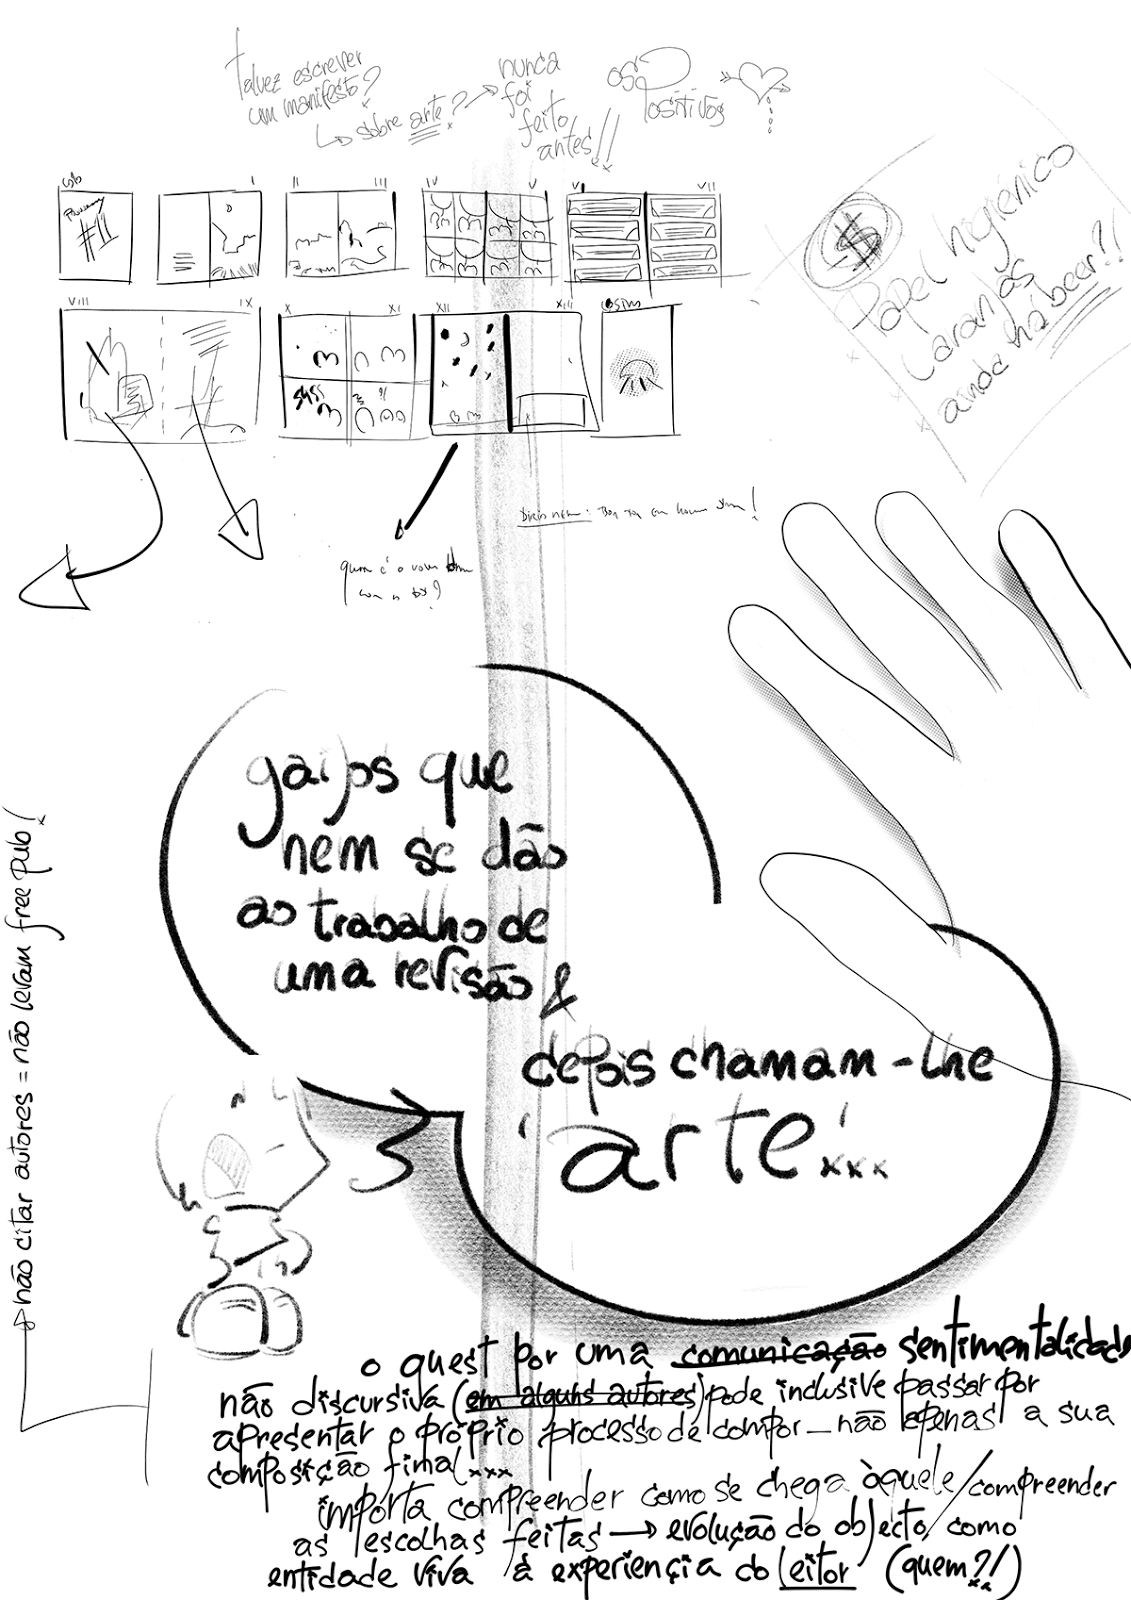 talvez escrever
um manifesto?
↳ sobre arte? →
nunca
foi
feito
antes!!
os
Positivos
I
II
III
IV
V
VI
VII
#11
$
Papel higiénico
Laranjas
ainda há beer?!
VIII
IX
X
XI
XII
XIII
gajos que
nem se dão
ao trabalho de
uma revisão &
depois chamam-lhe
'arte'...
não citar autores = não levam free pub!
o quest por uma comunicação sentimentalidade
não discursiva (em alguns autores) pode inclusive passar por
apresentar o próprio processo de compor _ não apenas a sua
composição final...
importa compreender como se chega àquele/compreender
as escolhas feitas → evolução do objecto, como
entidade viva à experiência do leitor (quem?!)